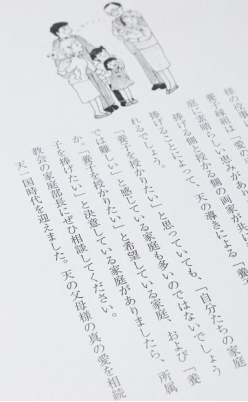 様の
養子縁組は、「愛の
庭に素晴らしい恵みがあり
捧げる側と授かる側の両家庭が共
捧げることによって、天の導きによる「養
れるでしょう。
「養子を授かりたい」と思っていても、「自分たちの家庭
では難しい」と感じている家庭も多いのではないでしょう
か。「養子を授かりたい」と希望している家庭、および「養
子を捧げたい」と決意している家庭がありましたら、所属
教会の家庭部長にぜひ相談してください。
天一国時代を迎えました。天の父母様の真の愛を相続